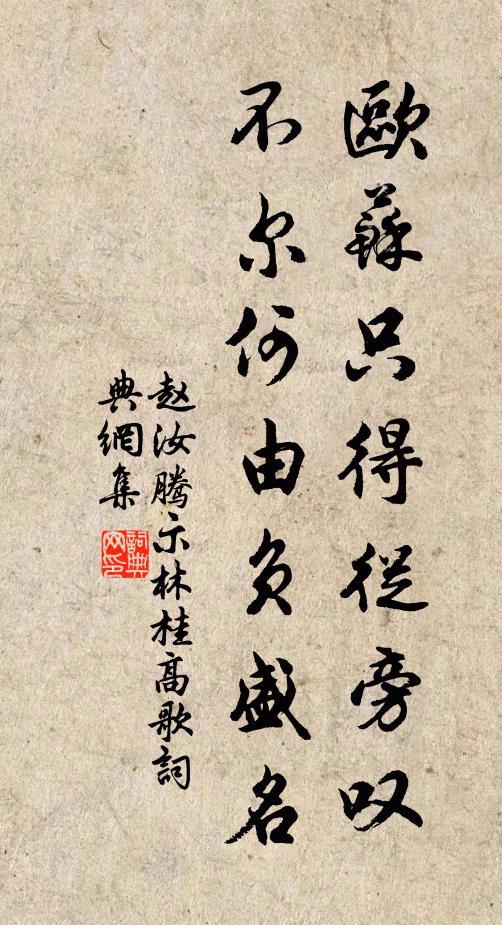 歐蘇只得從旁叹
不尔何由负盛名
赵汝腾示林桂高歌詞
典網集
詞典网印